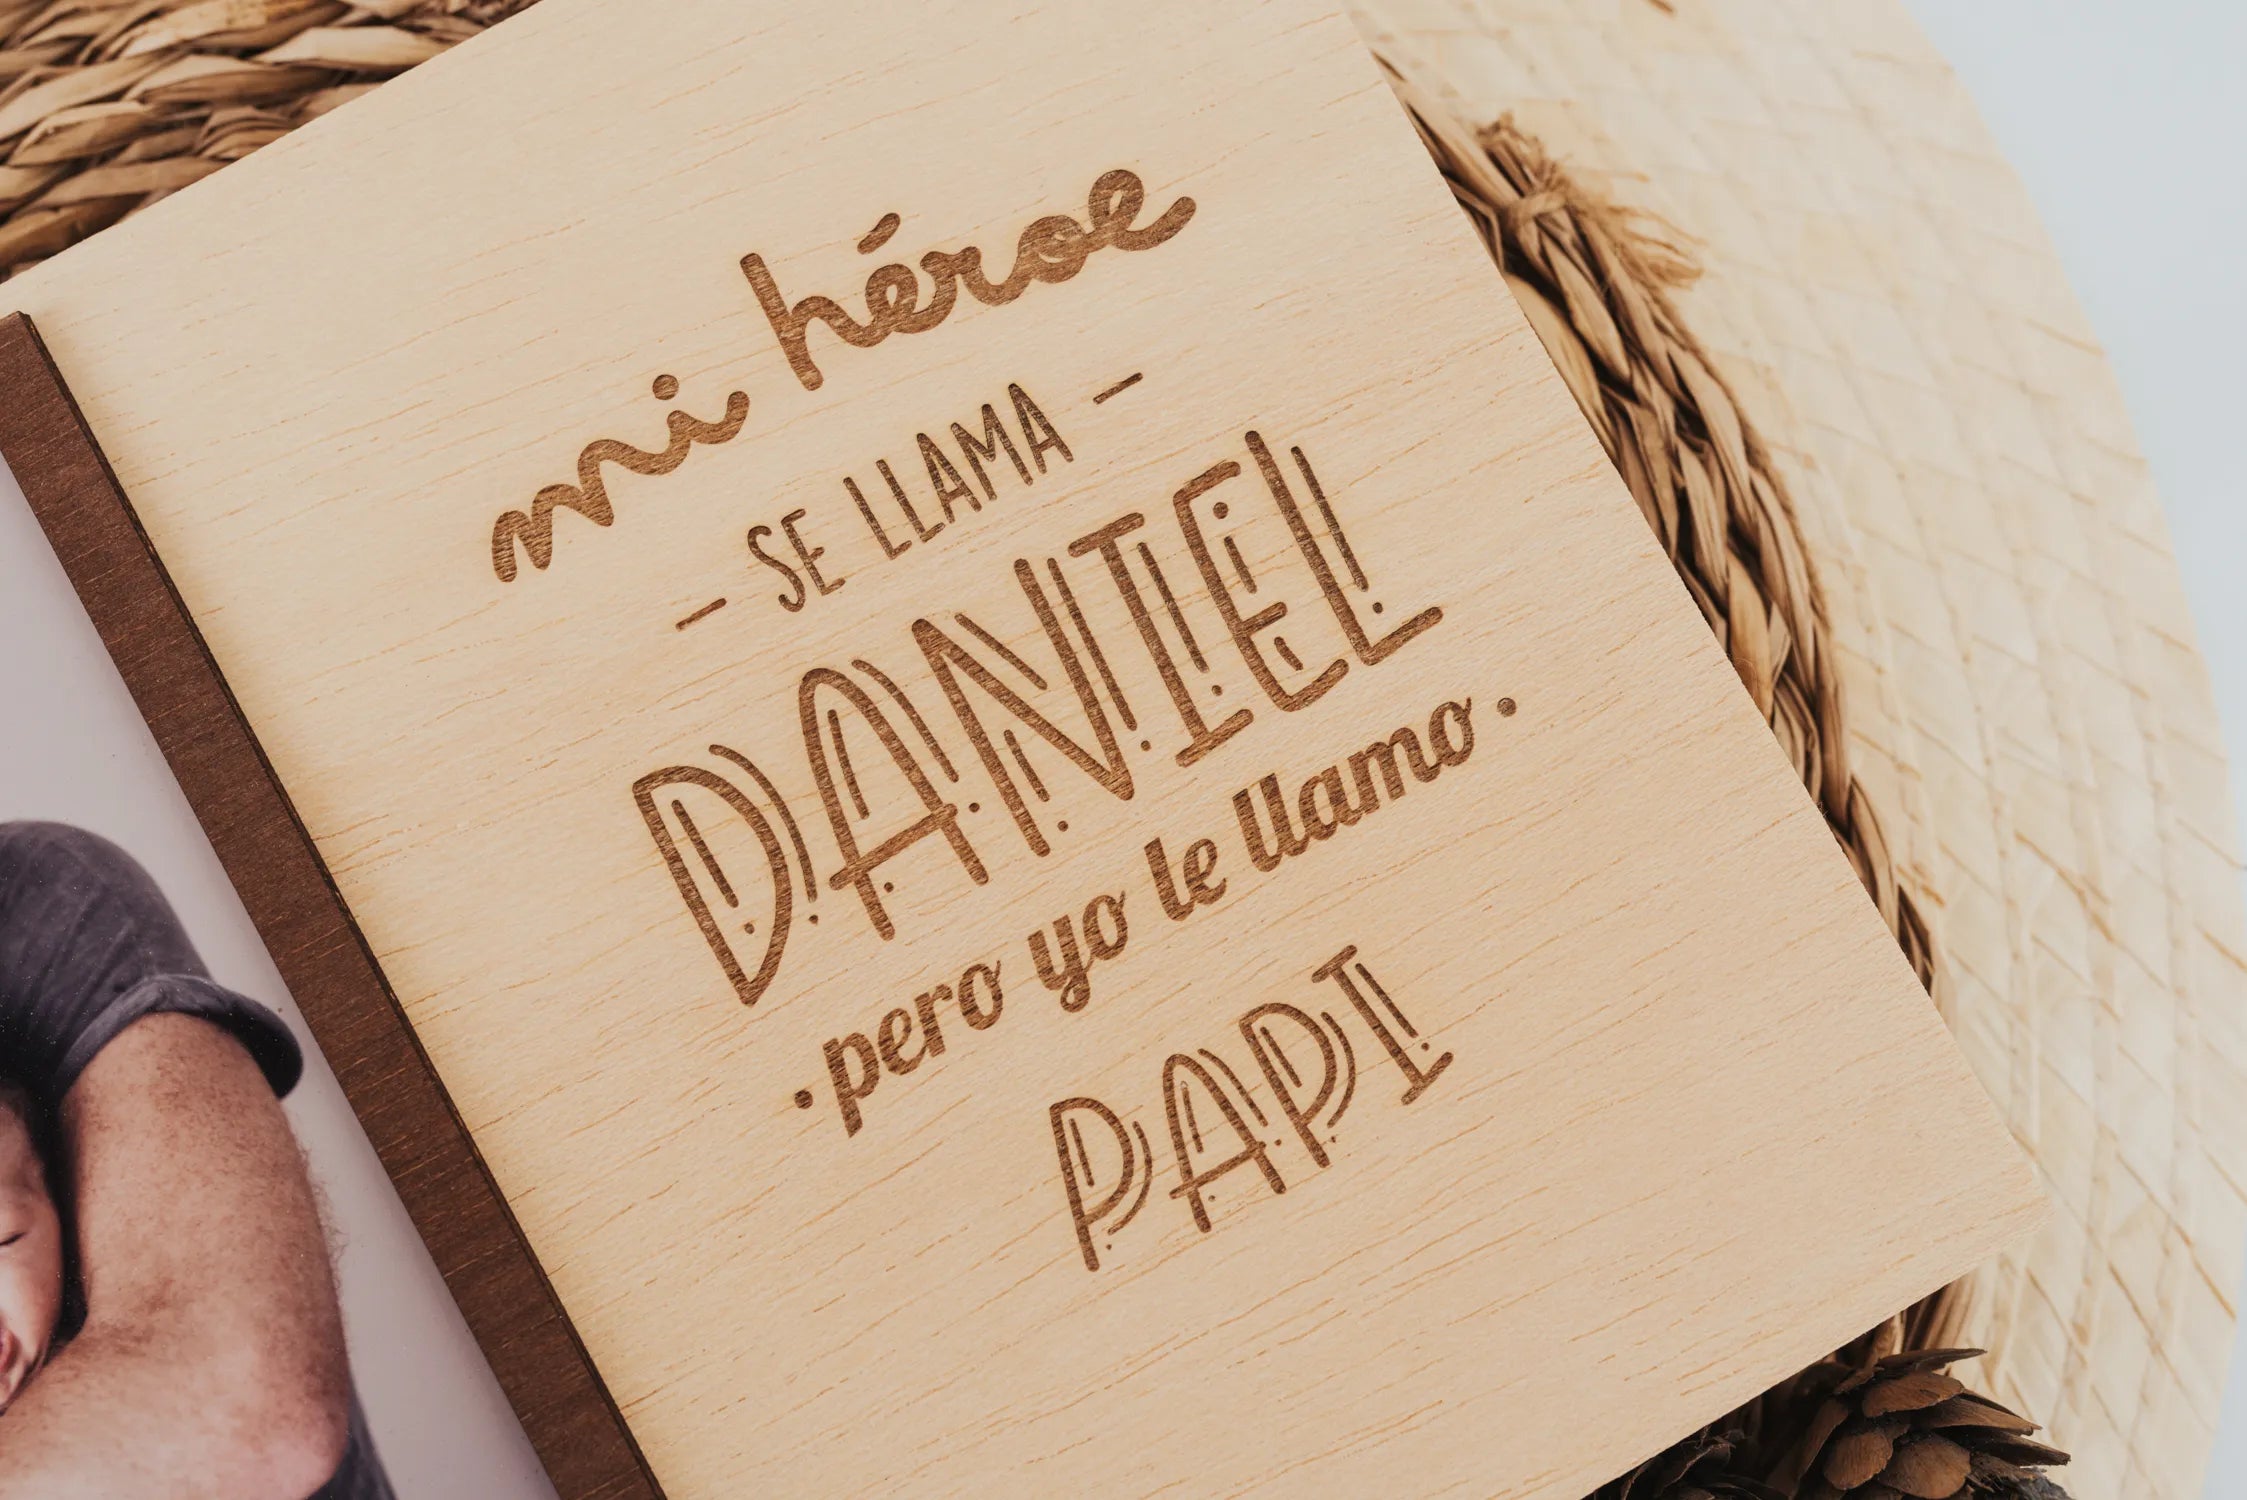 mi héroe
- SE LLAMA -
DANIEL
· pero yo le llamo ·
PAPI